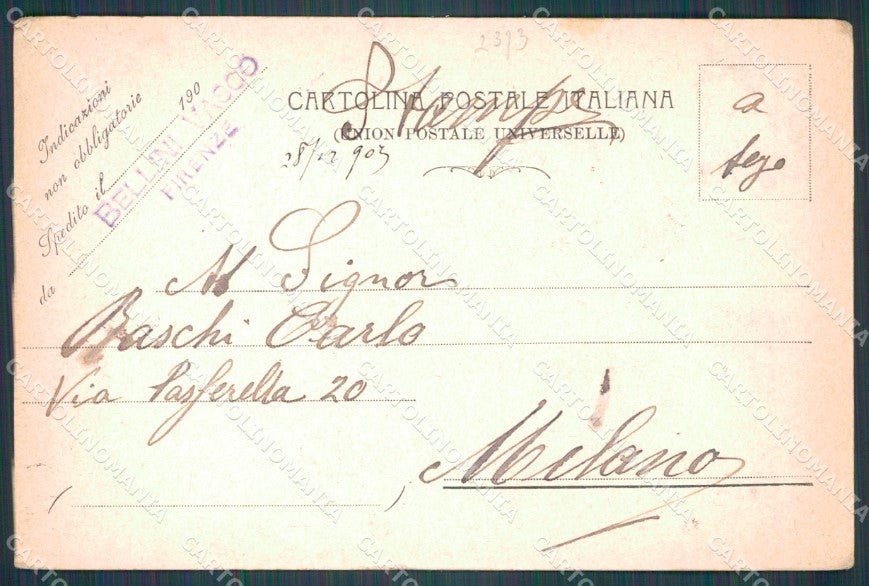 2373
Indicazioni
non obbligatorie
Spedito il 190
da
BELLINI VASCO
FIRENZE
CARTOLINA POSTALE ITALIANA
(UNION POSTALE UNIVERSELLE)
Stampe
28/12 903
a
tergo
Al Signor
Carlo
Via 20
Milano
CARTOLINOMANIA